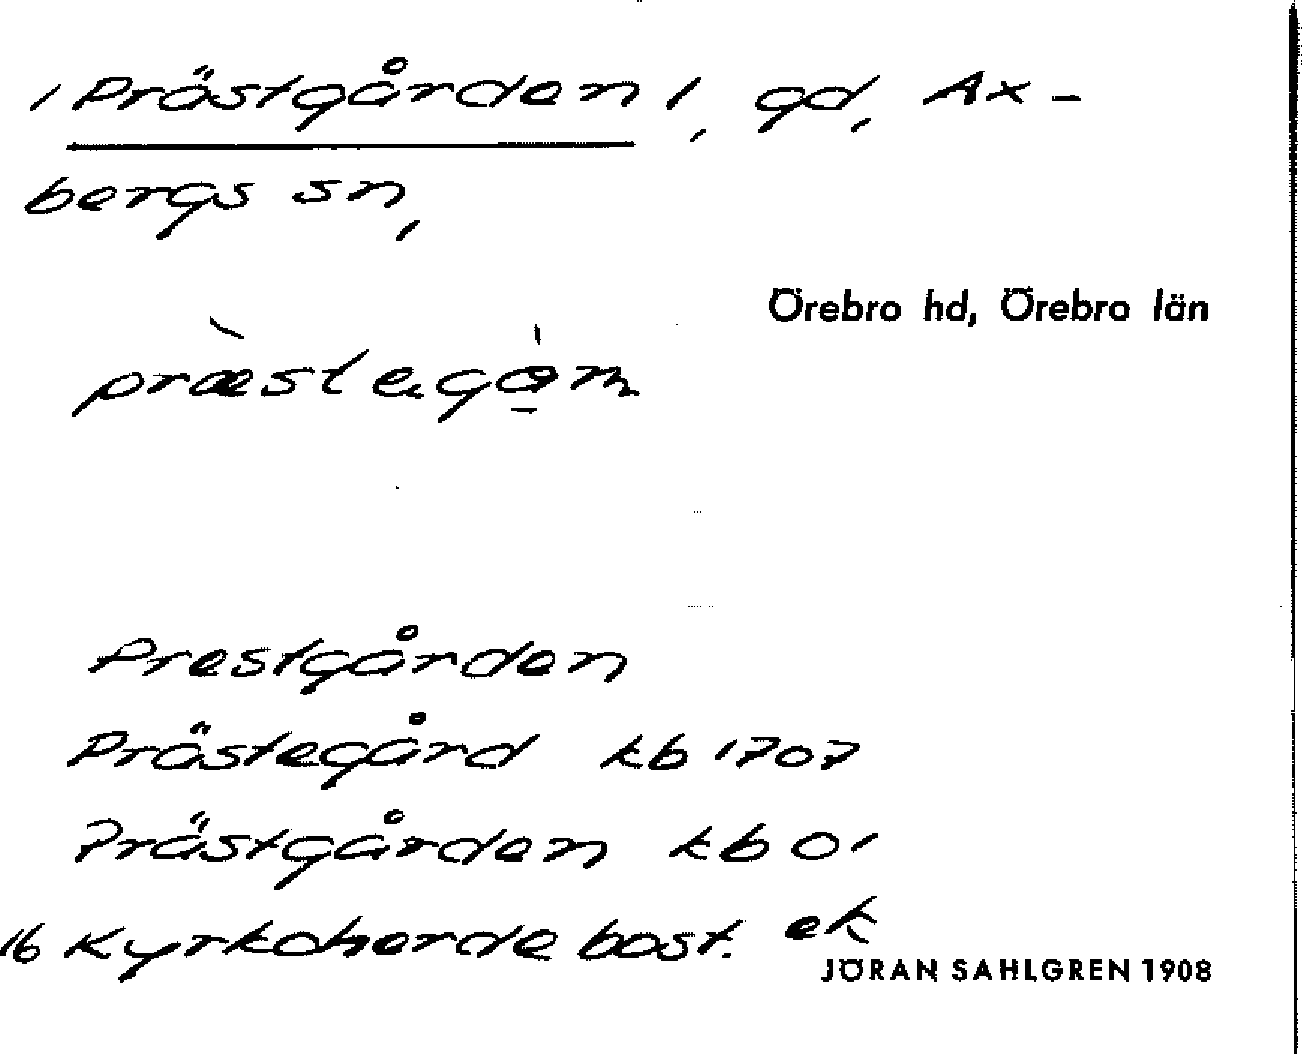 / Prästgården /, gd, Ax-
bergs sn,
Örebro hd, Örebro län
Prestgården
Prästegård kb 1707
Prästgården kb 01
16 Kyrkoherdebost. ek
JÖRAN SAHLGREN 1908